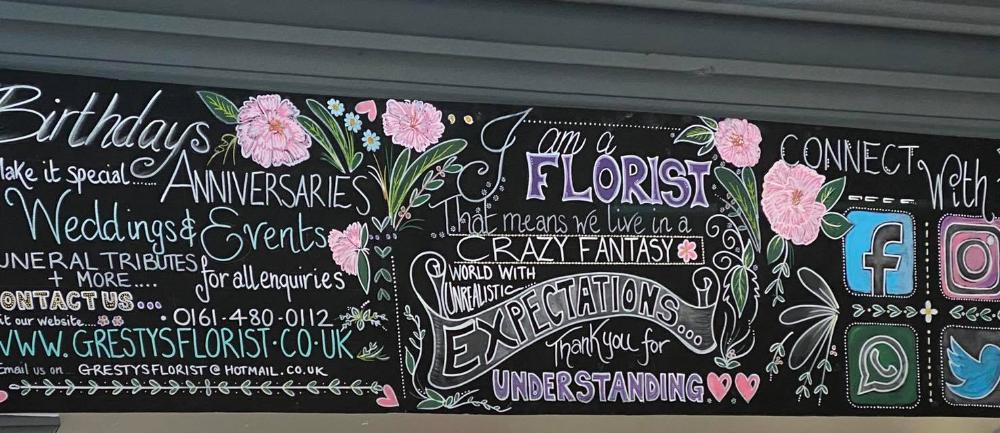 Birthdays
Make it special.....
ANNIVERSARIES
Weddings & Events
FUNERAL TRIBUTES
+ MORE....
for all enquiries
CONTACT US...
0161-480-0112
it our website....
WWW.GRESTYSFLORIST.CO.UK
Email us on... GRESTYSFLORIST@HOTMAIL.CO.UK
I am a
FLORIST
That means we live in a
CRAZY FANTASY
WORLD WITH
UNREALISTIC
EXPECTATIONS...
Thankyou for
UNDERSTANDING
CONNECT With